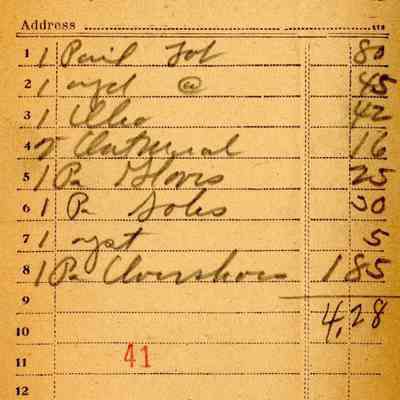 Address
1 1 Pail 80
2 1 @ 45
3 1 Oleo 42
4 Oatmeal 16
5 1 Pr Gloves 25
6 1 Pr Soles 30
7 1 5
8 1 Pr Overshoes 1 85
9
10 4,28
11 41
12